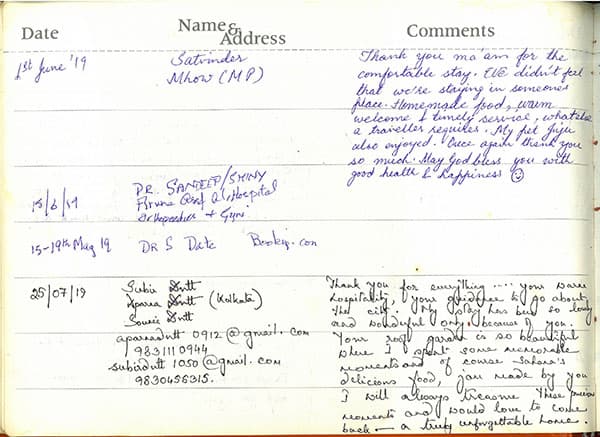 Date
Name & Address
Comments
1st June '19
Satvinder
Mhow (MP)
Thank you ma'am for the
comfortable stay. We didn't feel
that we're staying in someones
place. Homemade food, warm
welcome & timely service, what else
a traveller requires. My pet
also enjoyed. Once again thank you
so much. May God bless you with
good health & happiness ☺
DR. SANDEEP/SHINY
Hospital
& Gyn.
15-19th May 19
DR S Date
Booking.com
25/07/19
Subir Dutt
Aparna Dutt (Kolkata)
Dutt
aparnadutt 0912@gmail.com
9831110944
subirdutt 1050@gmail.com
9830456315.
Thank you for everything .... your warm
hospitality, your guidance to go about
the city. My stay has been so lovely
and wonderful only because of you.
Your roof garden is so beautiful
where I spent some memorable
moments and of course
delicious food, jam made by you
I will always treasure these precious
moments and would love to come
back — a truly unforgettable home.